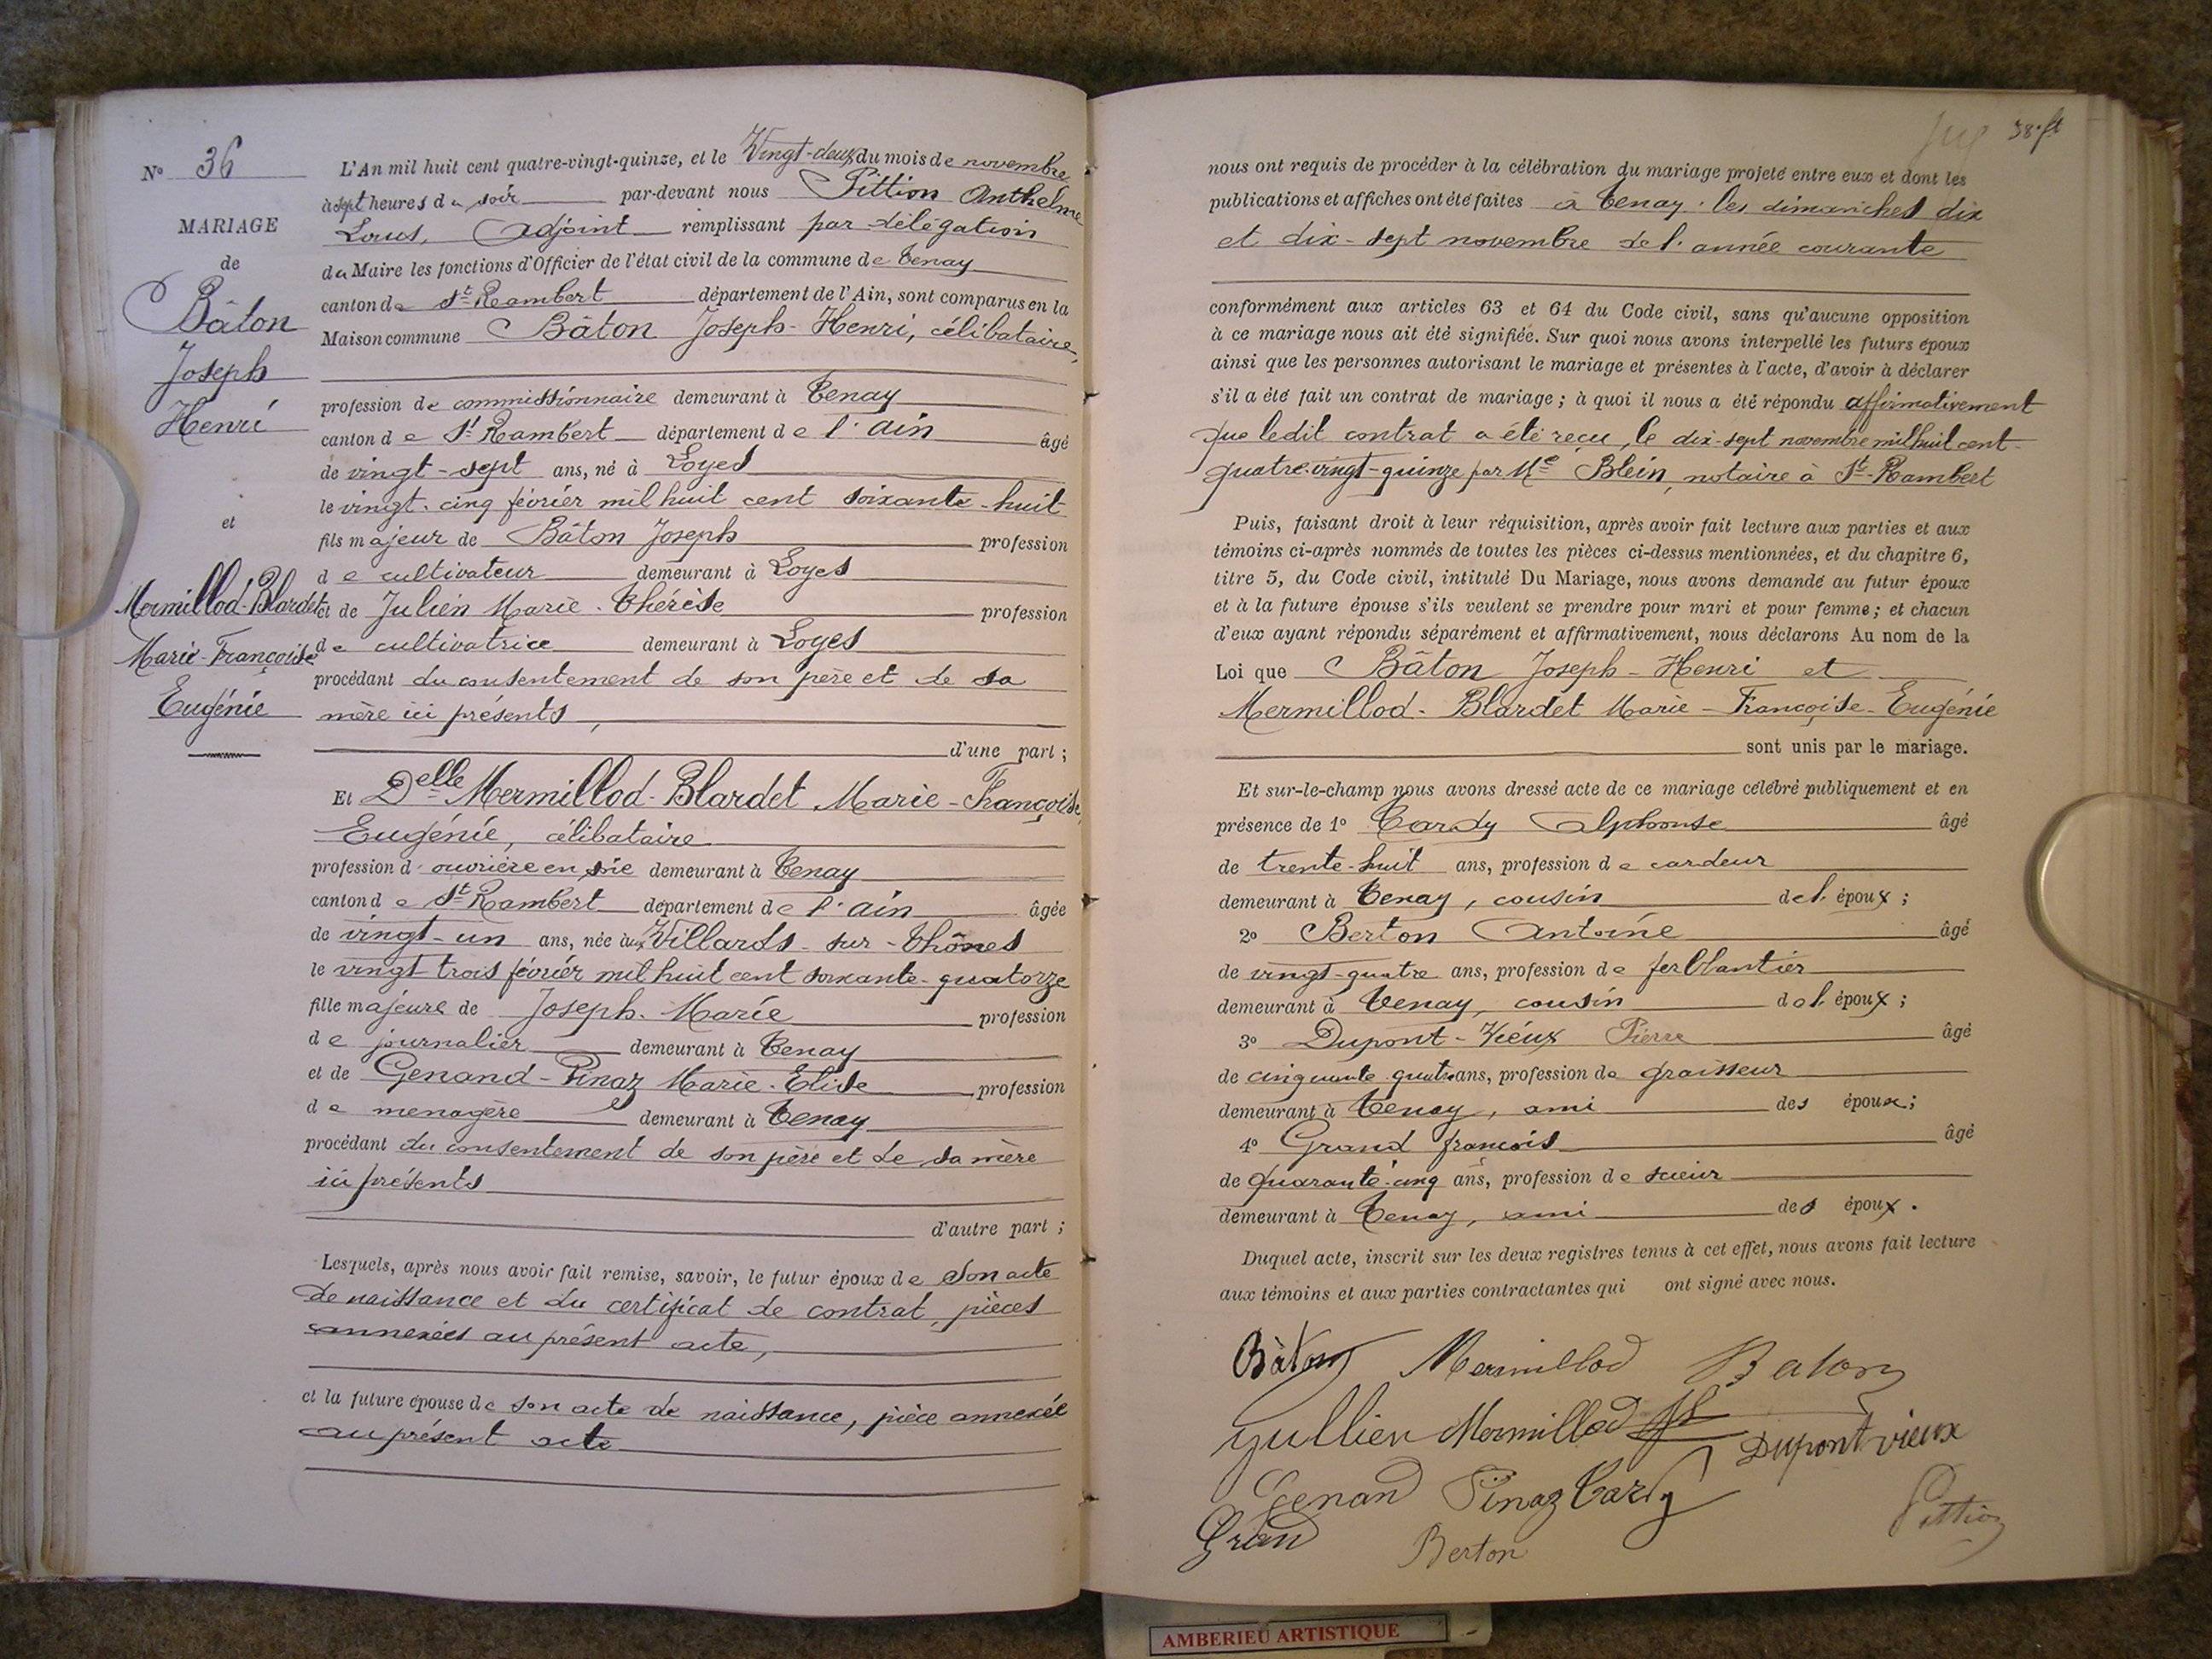 N° 36
MARIAGE
de
Bâton
Joseph
Henri
et
Mermillod-Blardet
Marie-Françoise
Eugénie
L'An mil huit cent quatre-vingt-quinze, et le Vingt-deux du mois de novembre
à sept heures du soir par-devant nous Pittion Anthelme
Louis, Adjoint remplissant par délégation
du Maire les fonctions d'Officier de l'état civil de la commune de Tenay
canton de St Rambert département de l'Ain, sont comparus en la
Maison commune Bâton Joseph-Henri, célibataire,
profession de commissionnaire demeurant à Tenay
canton de St Rambert département de l'Ain âgé
de vingt-sept ans, né à Loyes
le vingt-cinq février mil huit cent soixante-huit
fils majeur de Bâton Joseph profession
de cultivateur demeurant à Loyes
et de Julien Marie-Thérèse profession
de cultivatrice demeurant à Loyes
procédant du consentement de son père et de sa
mère ici présents,
d'une part;
Et Delle Mermillod-Blardet Marie-Françoise
Eugénie, célibataire
profession d'ouvrière en soie demeurant à Tenay
canton de St Rambert département de l'Ain âgée
de vingt-un ans, née aux Villards-sur-Thônes
le vingt trois février mil huit cent soixante-quatorze
fille majeure de Joseph-Marie profession
de journalier demeurant à Tenay
et de Genand-Pinaz Marie-Elise profession
de menagère demeurant à Tenay
procédant du consentement de son père et de sa mère
ici présents
d'autre part;
Lesquels, après nous avoir fait remise, savoir, le futur époux de son acte
de naissance et du certificat de contrat, pièces
annexées au présent acte,
et la future épouse de son acte de naissance, pièce annexée
au présent acte
38. ft
nous ont requis de procéder à la célébration du mariage projeté entre eux et dont les
publications et affiches ont été faites à Tenay les dimanches dix
et dix-sept novembre de l'année courante
conformément aux articles 63 et 64 du Code civil, sans qu'aucune opposition
à ce mariage nous ait été signifiée. Sur quoi nous avons interpellé les futurs époux
ainsi que les personnes autorisant le mariage et présentes à l'acte, d'avoir à déclarer
s'il a été fait un contrat de mariage; à quoi il nous a été répondu affirmativement
que ledit contrat a été reçu, le dix-sept novembre mil huit cent
quatre-vingt-quinze par Me Blein, notaire à St-Rambert
Puis, faisant droit à leur réquisition, après avoir fait lecture aux parties et aux
témoins ci-après nommés de toutes les pièces ci-dessus mentionnées, et du chapitre 6,
titre 5, du Code civil, intitulé Du Mariage, nous avons demandé au futur époux
et à la future épouse s'ils veulent se prendre pour mari et pour femme; et chacun
d'eux ayant répondu séparément et affirmativement, nous déclarons Au nom de la
Loi que Bâton Joseph-Henri et
Mermillod-Blardet Marie-Françoise-Eugénie
sont unis par le mariage.
Et sur-le-champ nous avons dressé acte de ce mariage célébré publiquement et en
présence de 1° Tardy Alphonse âgé
de trente-huit ans, profession de cardeur
demeurant à Tenay, cousin de l'époux;
2° Berton Antoine âgé
de vingt-quatre ans, profession de ferblantier
demeurant à Tenay, cousin de l'époux;
3° Dupont-Vieux Pierre âgé
de cinquante quatre ans, profession de graisseur
demeurant à Tenay, ami des époux;
4° Grand françois âgé
de quarante-cinq ans, profession de scieur
demeurant à Tenay, ami des époux.
Duquel acte, inscrit sur les deux registres tenus à cet effet, nous avons fait lecture
aux témoins et aux parties contractantes qui ont signé avec nous.
Bâton Mermillod Baton
Gullien Mermillod Dupont vieux
Genand Pinaz Tardy
Grand Berton Pittion
AMBERIEU ARTISTIQUE